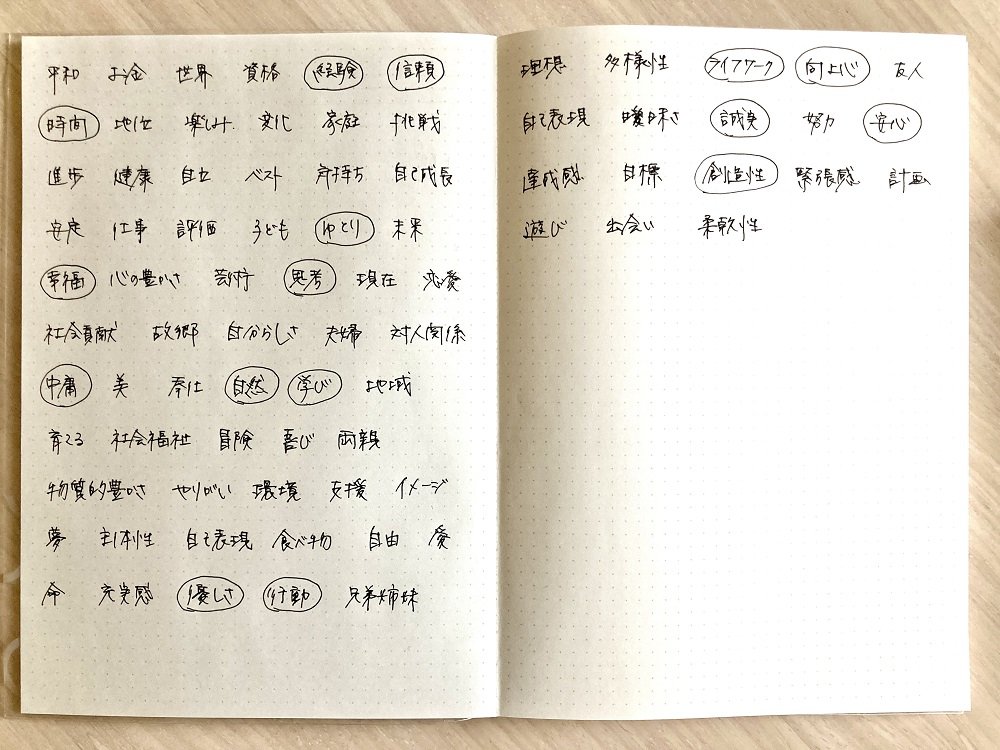 平和 お金 世界 資格 経験 信頼
時間 地位 楽しみ 文化 家庭 挑戦
進歩 健康 自立 ベスト 気持ち 自己成長
安定 仕事 評価 子ども ゆとり 未来
幸福 心の豊かさ 芸術 思考 現在 恋愛
社会貢献 故郷 自分らしさ 夫婦 対人関係
中庸 美 奉仕 自然 学び 地域
育てる 社会福祉 冒険 喜び 両親
物質的豊かさ やりがい 環境 支援 イメージ
夢 主体性 自己表現 食べ物 自由 愛
命 充実感 優しさ 行動 兄弟姉妹
理想 多様性 ライフワーク 向上心 友人
自己表現 曖昧さ 誠実 努力 安心
達成感 目標 創造性 緊張感 計画
遊び 出会い 柔軟性